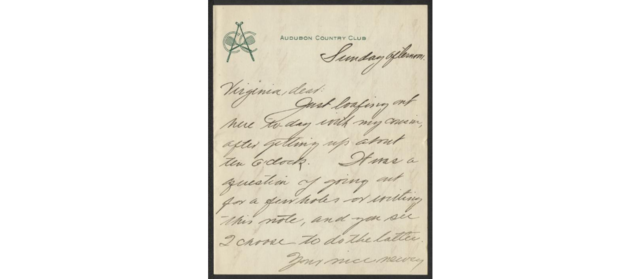 AUDUBON COUNTRY CLUB
Sunday afternoon
Virginia, dear:
Just loafing out
here to day with my cousin,
after getting up about
ten O'clock. It was a
question of going out
for a few holes or writing
this note, and you see
I choose to do the latter.
Your nice newsy